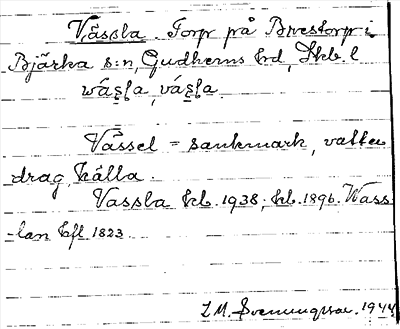 Vässla. Torp på Brestorp i
Bjärka s:n, Gudhems hd, Skb. l
wäs̨l̨a, väs̨l̨a
Vässel = sankmark, vatten
drag, källa.
Vassla kb. 1938; kb. 1896. Wass
-lan hfl 1823.
Svenungsson. 1944